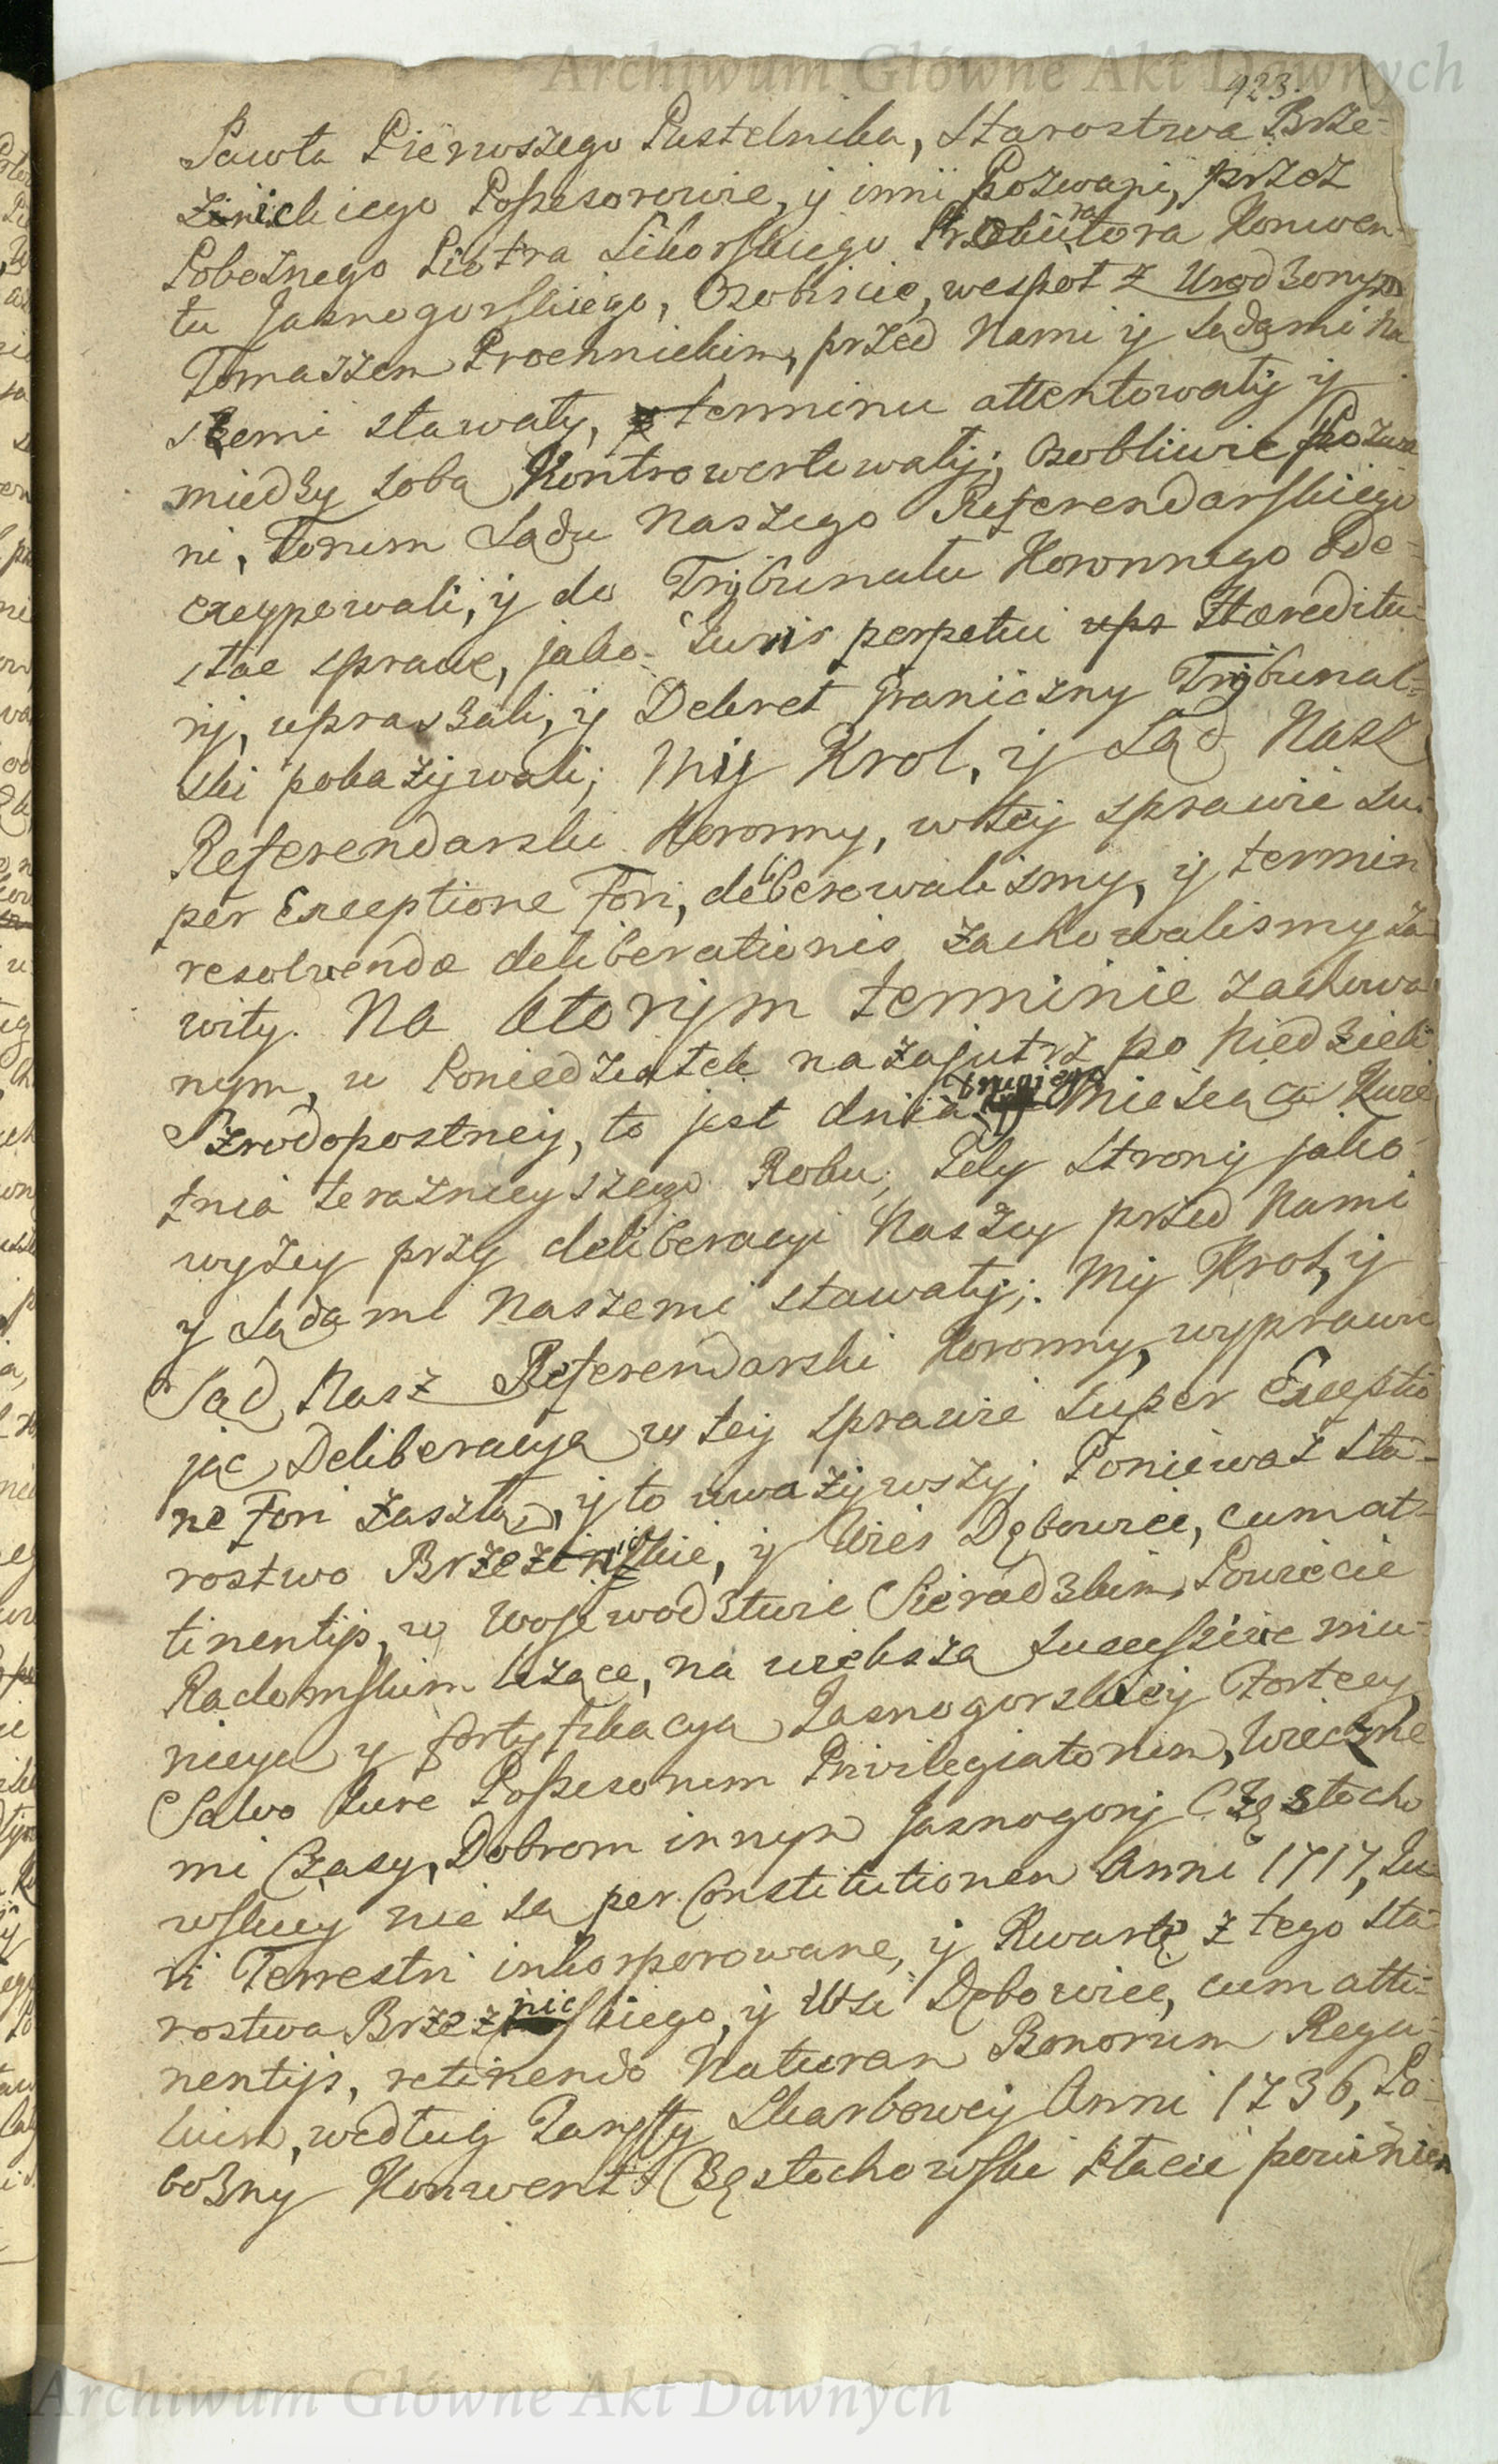 Archiwum Główne Akt Dawnych
923.
Pawła Pierwszego Pustelnika, Starostwa Brze-
zinickiego Possessorowie, y inni Pozwani, przez
Pobożnego Piotra Sikorskiego Prokuratora Konwen-
tu Jasnogorskiego, Osobiscie, wespoł z Urodzonym
Tomaszem Prochnickim, przed Nami y Sądami Na
szemi stawały, z terminu attentowały y
miedzy sobą Kontrowertowały; Osobliwie Pozwa
ni, Forum Sądu Naszego Referendarskiego
excypowali, y do Trybunału Koronnego Ode-
słae sprawe, jako Juris perpetui ups Hæredita-
rij, upraszali, y Dekret Graniczny Trybunal-
ski pokazywali; My Krol, y Sąd Nasz
Referendarski Koronny, w tey sprawie su-
per Exceptione Fori, deliberowalismy, y termin
resolvendæ deliberationis zachowalismy za
wity. Na ktorym terminie zachowa
nym, w Poniedziałek nazajutrz po Niedzieli
Szrodopostney, to jest dnia drugiego Miesiąca Kwie
tnia terazneyszego Roku, Gdy Strony jako
wyzey przy deliberacyi Naszey przed Nami
y Sądami Naszemi stawały; My Krol, y
Sąd Nasz Referendarski Koronny, wyprawu
jąc Deliberacyą w tey sprawie super Exceptio
ne Fori zaszłą, y to uwazywszy; Poniewaz Sta-
rostwo Brzeznickie, y Wies Dębowiec, cum at-
tinentijs, w Wojewodztwie Sieradzkim, Powiecie
Radomskim lezące, na większą successive mu-
nicyą y fortyfikacyą Jasnogorskiey Fortecy,
Salvo Jure Possessorum Privilegiatorum, Wieczne
mi Czasy, Dobrom innym Jasnogory Częstocho
wskiey nie są per Constitutionem Anni 1717, Ju
ri Terrestri inkorporowane, y Kwartę z tego Sta
rostwa Brzeznickiego, y Wsi Dębowiec, cum atti-
nentijs, retinendo Naturam Bonorum Rega-
lium, według Taryffy Skarbowey Anni 1736, Po-
bozny Konwent Częstochowski płacic powinien
Archiwum Główne Akt Dawnych